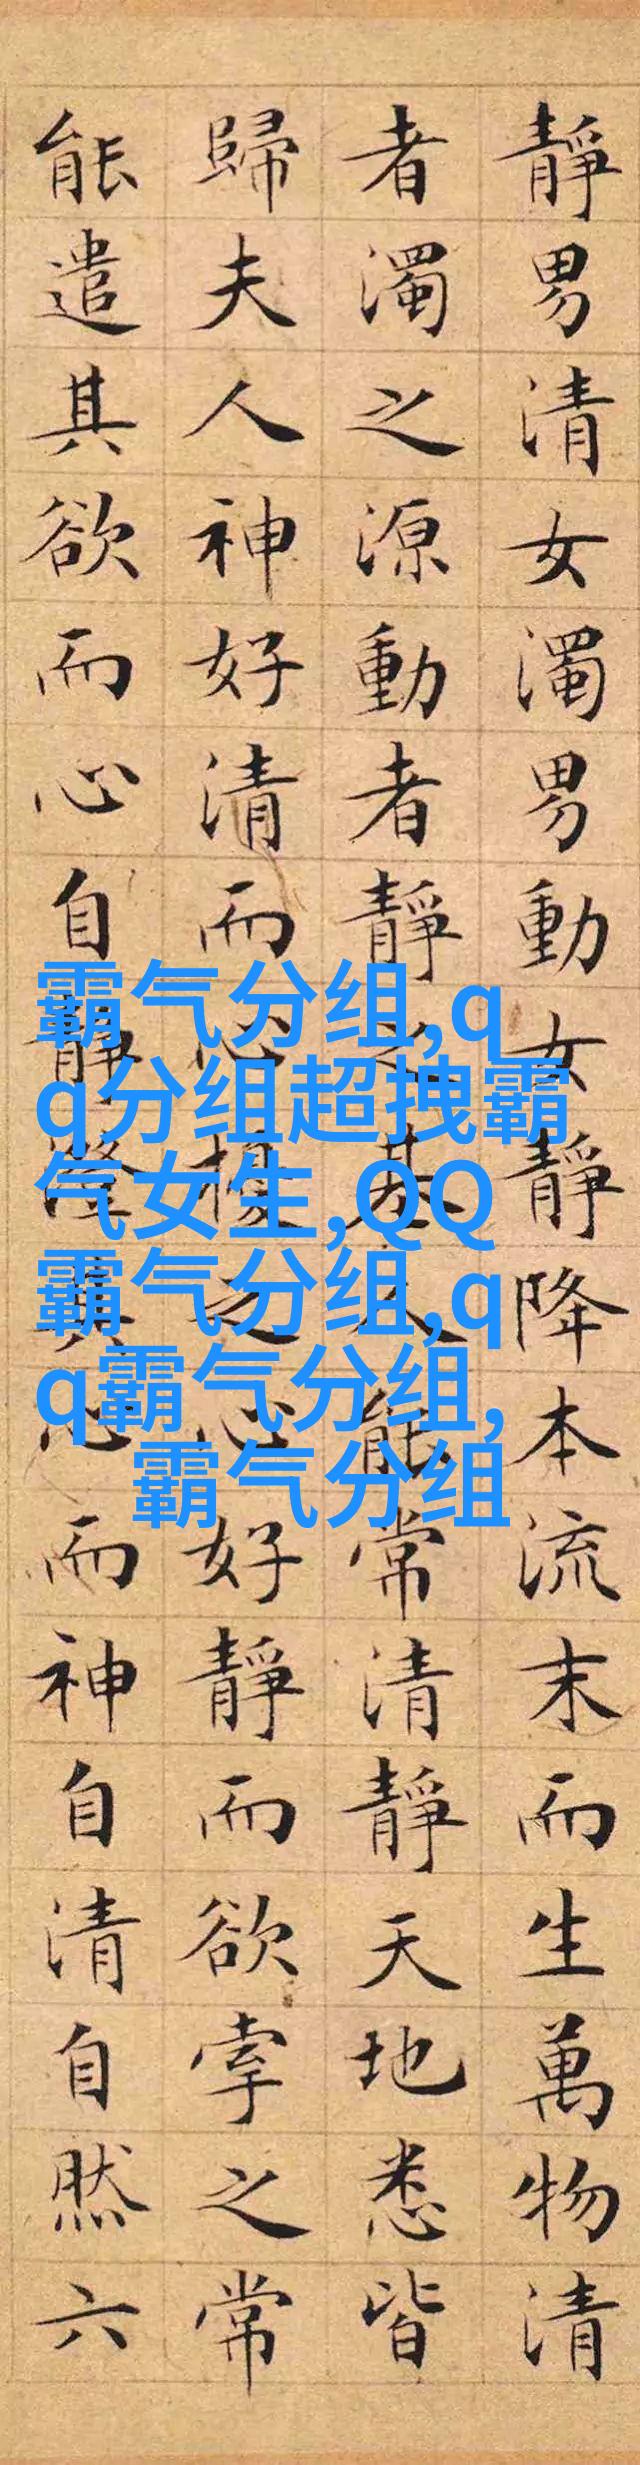 靜男清女濁男動女靜降本流末而生萬物清
者濁之源動者靜之基人能常清靜天地悉皆
歸夫人神好清而心擾之心好靜而欲牽之常
能遣其欲而心自靜澄其心而神自清自然六
霸气分组,q
q分组超拽霸
气女生,QQ
霸气分组,q
q霸气分组,
霸气分组